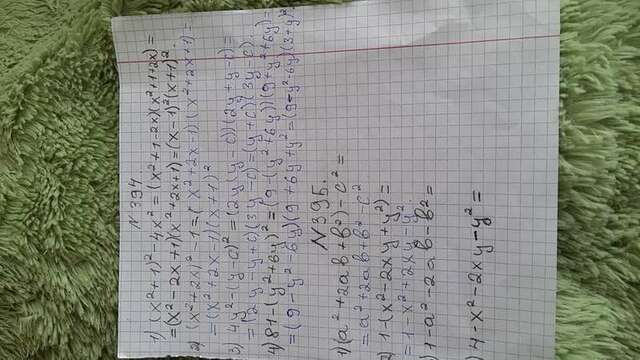 N 394
1) (x²+1)²-4x²=(x²+1-2x)(x²+1+2x)=
=(x²-2x+1)(x²+2x+1)=(x-1)²(x+1)².
2) (x²+2x)²-1=(x²+2x-1)(x²+2x+1)=
=(x²+2x-1)(x+1)²
3) 4y²-(y-c)²=(2y(y-c))(2y+y-c)=
=(2y-y+c)(3y-c)=(y+c)(3y-c).
4) 81-(y²+6y)²=(9-(y²+6y))(9+y²+6y)=
=(9-y²-6y)(9+6y+y²=(9-y²-6y)(3+y)²
N 395.
1) (a²+2ab+b²)-c²=
=a²+2ab+b²-c²
2) 1-(x²-2xy+y²)=
=1-x²+2xy-y².
) 1-a²-2ab-b²=
) 4-x²-2xy-y²=